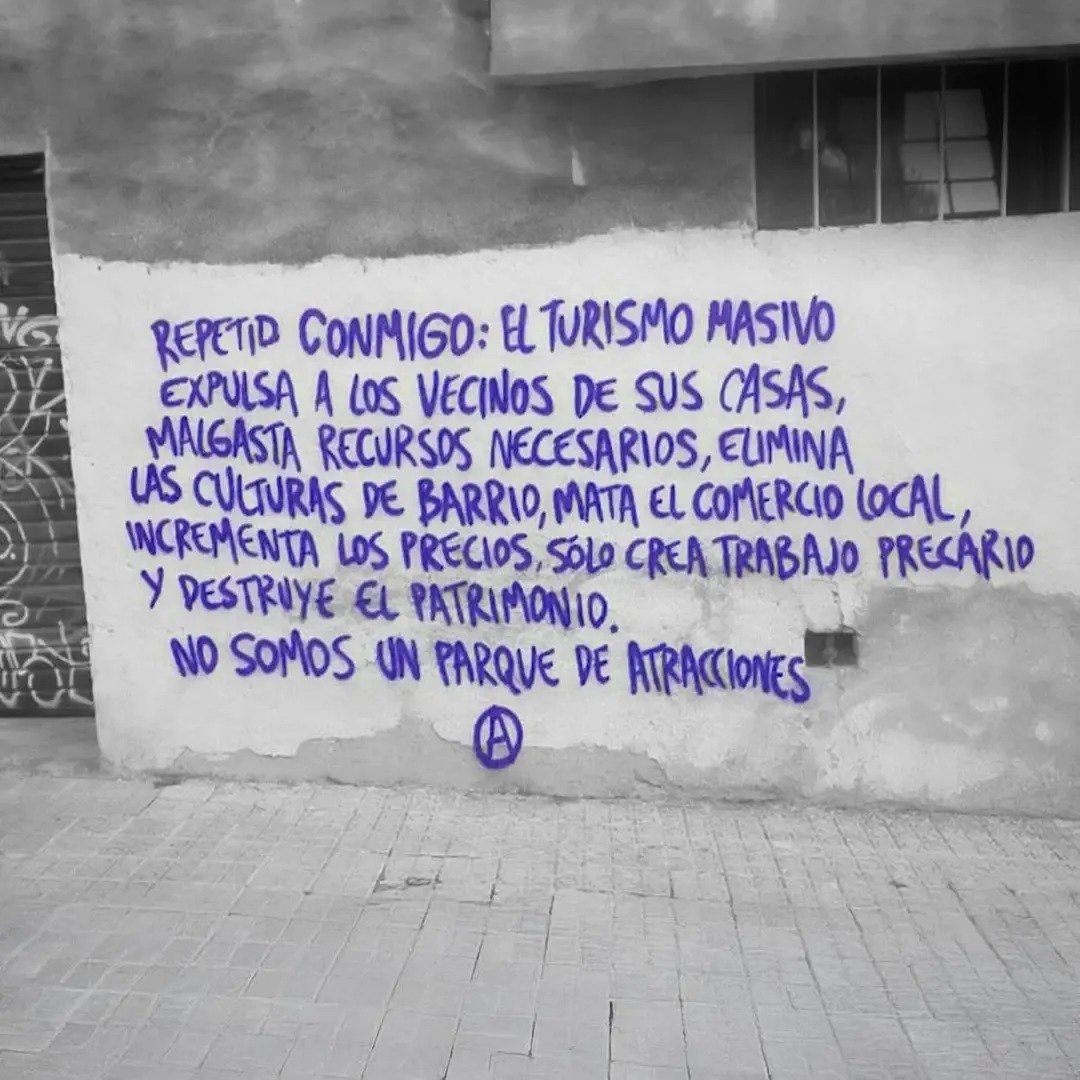 REPETID CONMIGO: EL TURISMO MASIVO
EXPULSA A LOS VECINOS DE SUS CASAS,
MALGASTA RECURSOS NECESARIOS, ELIMINA
LAS CULTURAS DE BARRIO, MATA EL COMERCIO LOCAL,
INCREMENTA LOS PRECIOS, SÓLO CREA TRABAJO PRECARIO
Y DESTRUYE EL PATRIMONIO.
NO SOMOS UN PARQUE DE ATRACCIONES
Ⓐ